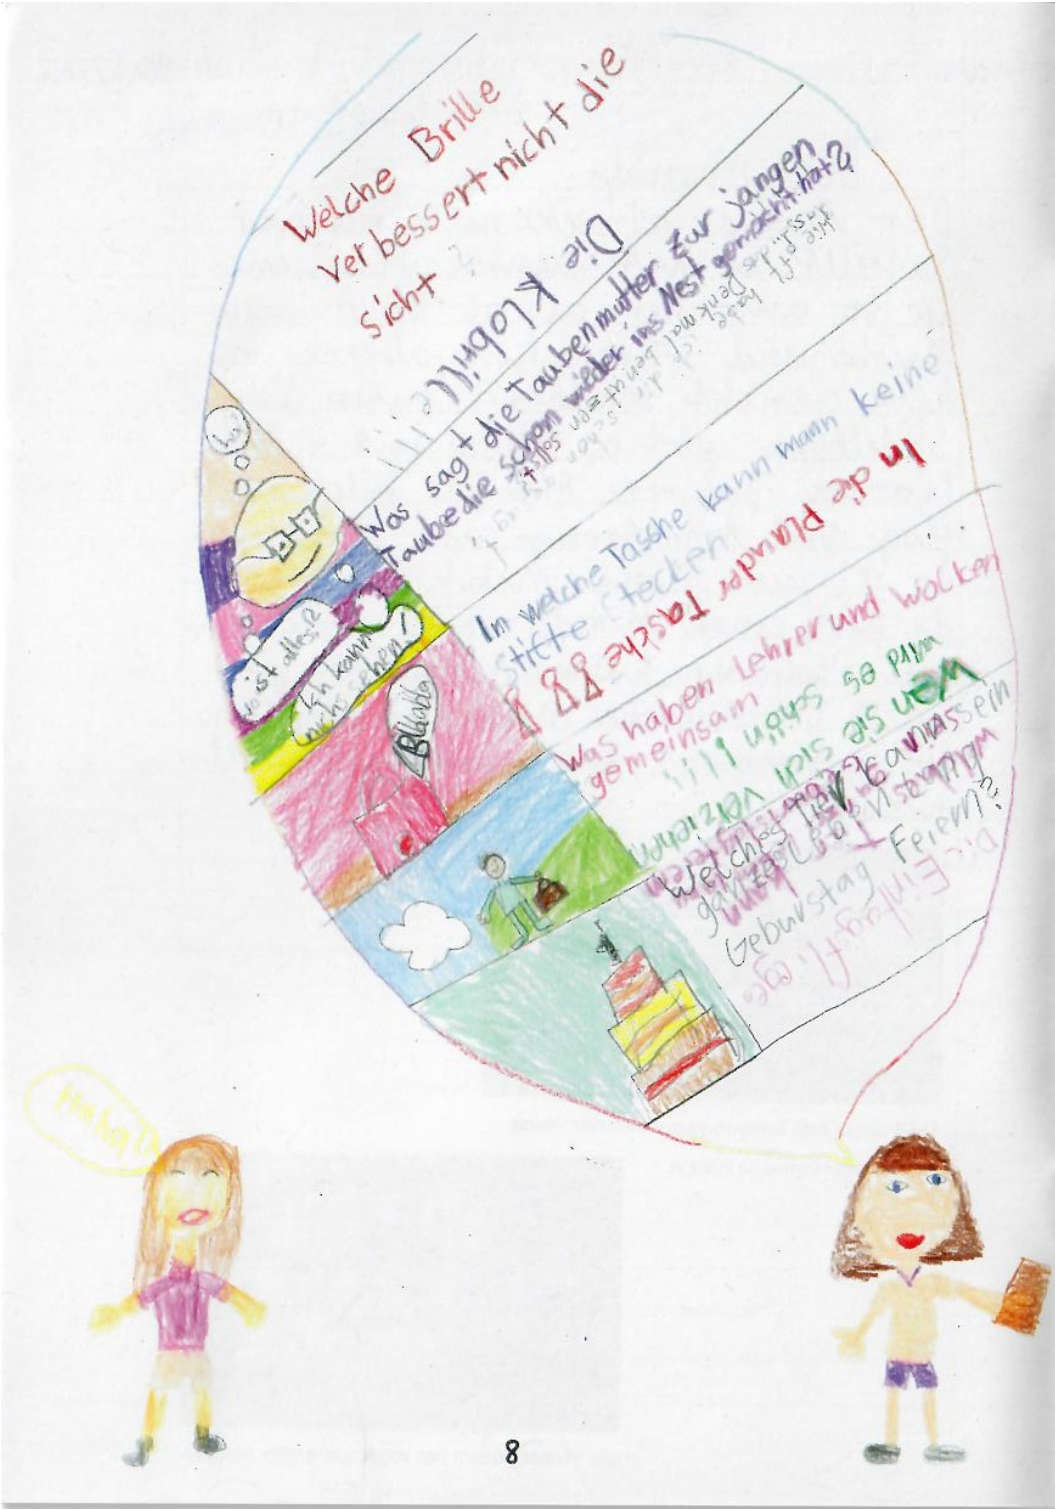 Welche Brille
verbessert nicht die
sicht ?
Die Klobrille !!!
Was sagt die Taubenmutter zur jangen
Taube die schon wieder ins Nest gemacht hat?
Wie oft habe ich dir schon gesagt,
dass du das Denkmal benutzen sollst
In welche Tasche kann mann keine
stifte stecken
In die Plauder Tasche
Was haben Lehrer und wolken
gemeinsam
wen sie sich verziehen
wird es schön !!!
Welches
ganzes
Geburstag Feiern?
Die Eintagsfliege
ha!
ist alles?
Ich kann
nichs sehen!
Blabla
Hahaha
8